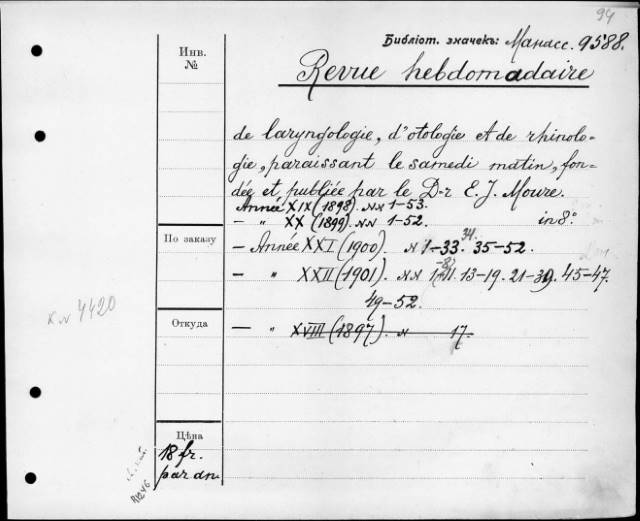 94
Библіот. значекъ: Манасс. 9588.
Инв.
№
Revue hebdomadaire
de laryngologie, d'otologie et de rhinolo-
gie, paraissant le samedi matin, fon-
dée et publiée par le D-r E. J. Moure.
Année XIX (1898). NN 1-53.
— „ XX (1899). NN 1-52. in 8°
По заказу
— Année XXI (1900). N 1-33. 34. 35-52.
— „ XXII (1901). NN 1-8. 11. 13-19. 21-39. 45-47.
49-52.
K.N 4420
Откуда
— „ XVIII (1897). N 17.
Цѣна
18 fr.
par an